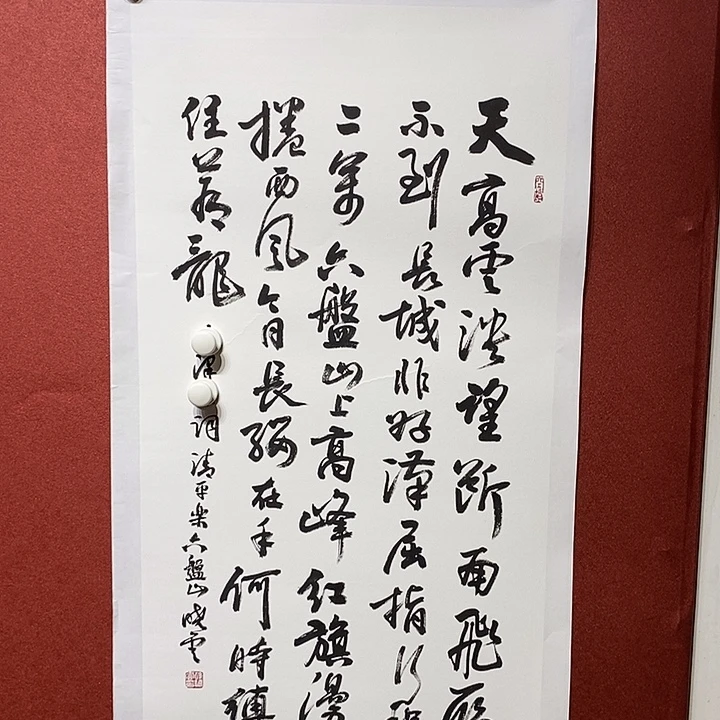 天高雲淡望斷南飛雁
不到長城非好漢屈指行程
二萬六盤山上高峰紅旗漫
捲西風今日長纓在手何時縛
住蒼龍
澤詞清平樂六盤山曉雲